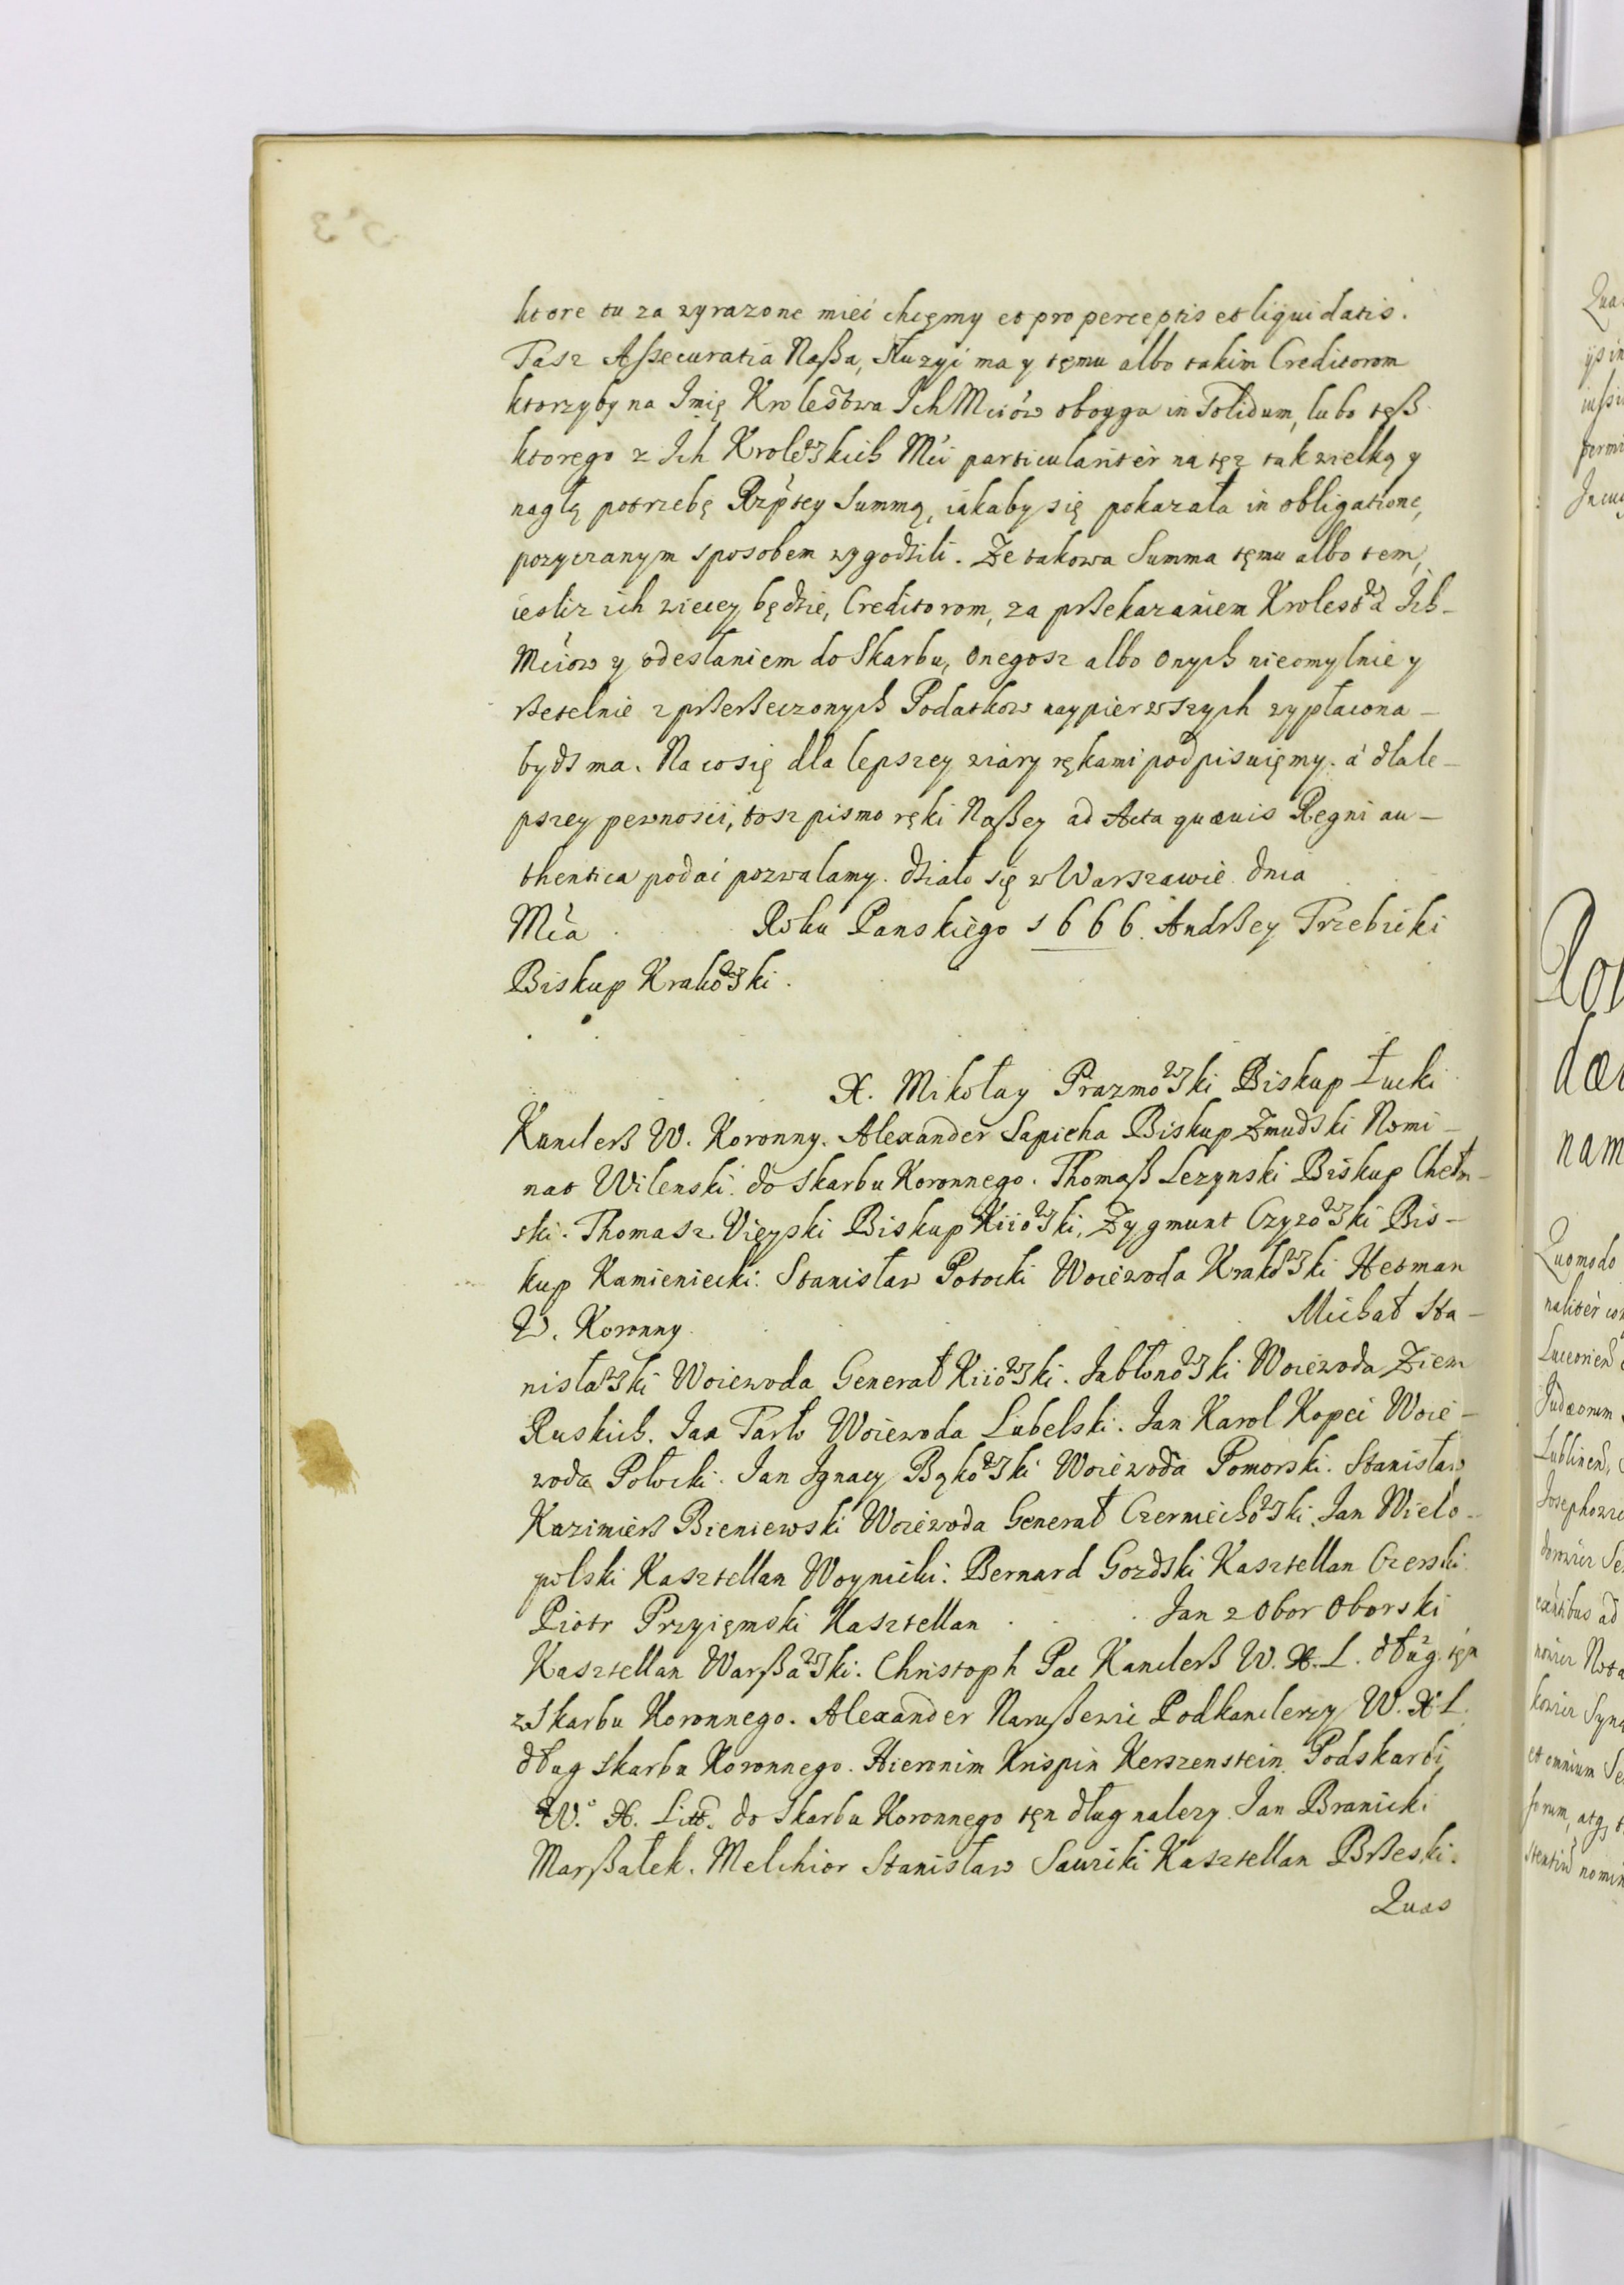 ktore tu za zyrazone mieć chcęmy et pro perceptis et liquidatis.
Tasz Aßecuratia Naßa, służyć ma y tęmu albo takim Creditorom
ktorzyby na Imię Krolestwa Ich Mciów oboyga in Solidum, lubo tęß
ktorego z Ich Krolewskich Mći particulariter na tęz tak wielką y
nagłą potrzebę Rzptey Summą, iakaby się pokazała in obligatione,
pozyczanym sposobem wygodzili. Ze takowa Summa tęmu albo tem,
ieslis ich wiecey będzie, Creditorom, za przekazaniem Krolestwa Ich-
Mciow y odesłaniem do Skarbu, onegosz albo onych nieomylnie y
rzetelnie z przerzeczonych Podatkow naypierwszych wypłacona-
bydz ma. Na co się dla lepszey wiary rękami podpisuięmy. a dla le-
pszey pewnosci, tosz pismo ręki Naßey ad Acta quævis Regni au-
thentica podać pozwalamy. działo się w Warszawie dnia
Mca Roku Panskiego 1666. Andrzey Trzebicki
Biskup Krakowski.
X. Mikołay Prazmowski Biskup Łucki
Kanclerz W. Koronny. Alexander Sapieha Biskup Zmudski Nomi-
nat Wilenski do Skarbu Koronnego. Thomaß Lezynski Biskup Chełm-
ski. Thomasz Uieyski Biskup Kiiowski, Zygmunt Czyzowski Bis-
kup Kamieniecki. Stanisław Potocki Woiewoda Krakowski Hetman
W. Koronny. Michał Sta-
nisławski Woiewoda Generał Kiiowski. Jabłonowski Woiewoda Ziem
Ruskich. Jan Tarło Woiewoda Lubelski. Jan Karol Kopeć Woie-
woda Połocki. Jan Ignacy Bąkowski Woiewoda Pomorski. Stanisław
Kazimierz Bieniewski Woiewoda Generał Czerniechowski. Jan Wielo-
polski Kasztellan Woynicki. Bernard Gozdski Kasztellan Czerski
Piotr Przyięmski Kasztellan Jan z Obor Oborski
Kasztellan Warßawski. Christoph Pac Kanclerz W. X. L. dług tęn
z Skarbu Koronnego. Alexander Narußewic Podkanclerzy W. X L.
dług Skarbu Koronnego. Hieronim Krispin Kerszenstein Podskarbi
W. X. Litt. do Skarbu Koronnego tęn dług nalezy Jan Branicki
Marßałek. Melchior Stanisław Sawicki Kasztellan Brzeski.
Quas